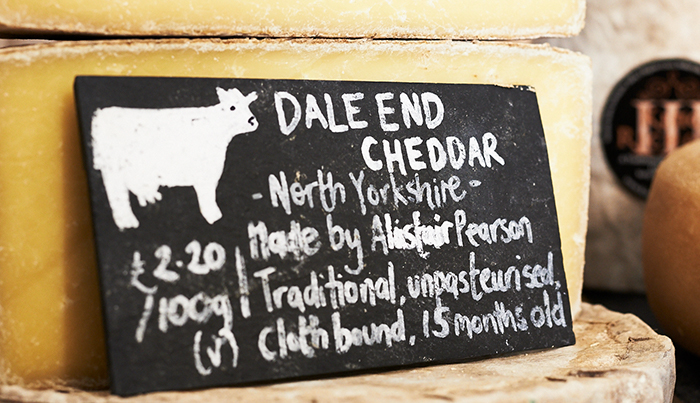 DALE END
CHEDDAR
- North Yorkshire -
Made by Alastair Pearson
£2.20
/100g
(v)
Traditional, unpasteurised,
Cloth bound, 15 months old